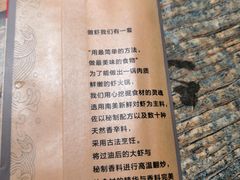 做虾我们有一套
"用最简单的方法，
做最美味的食物"
为了能做出一锅肉质
鲜嫩的虾火锅，
我们用心挖掘食材的灵魂
选用南美新鲜对虾为主料，
佐以秘制配方以及数十种
天然香辛料，
采用古法烹饪。
将过油后的大虾与
秘制香料进行高温翻炒，